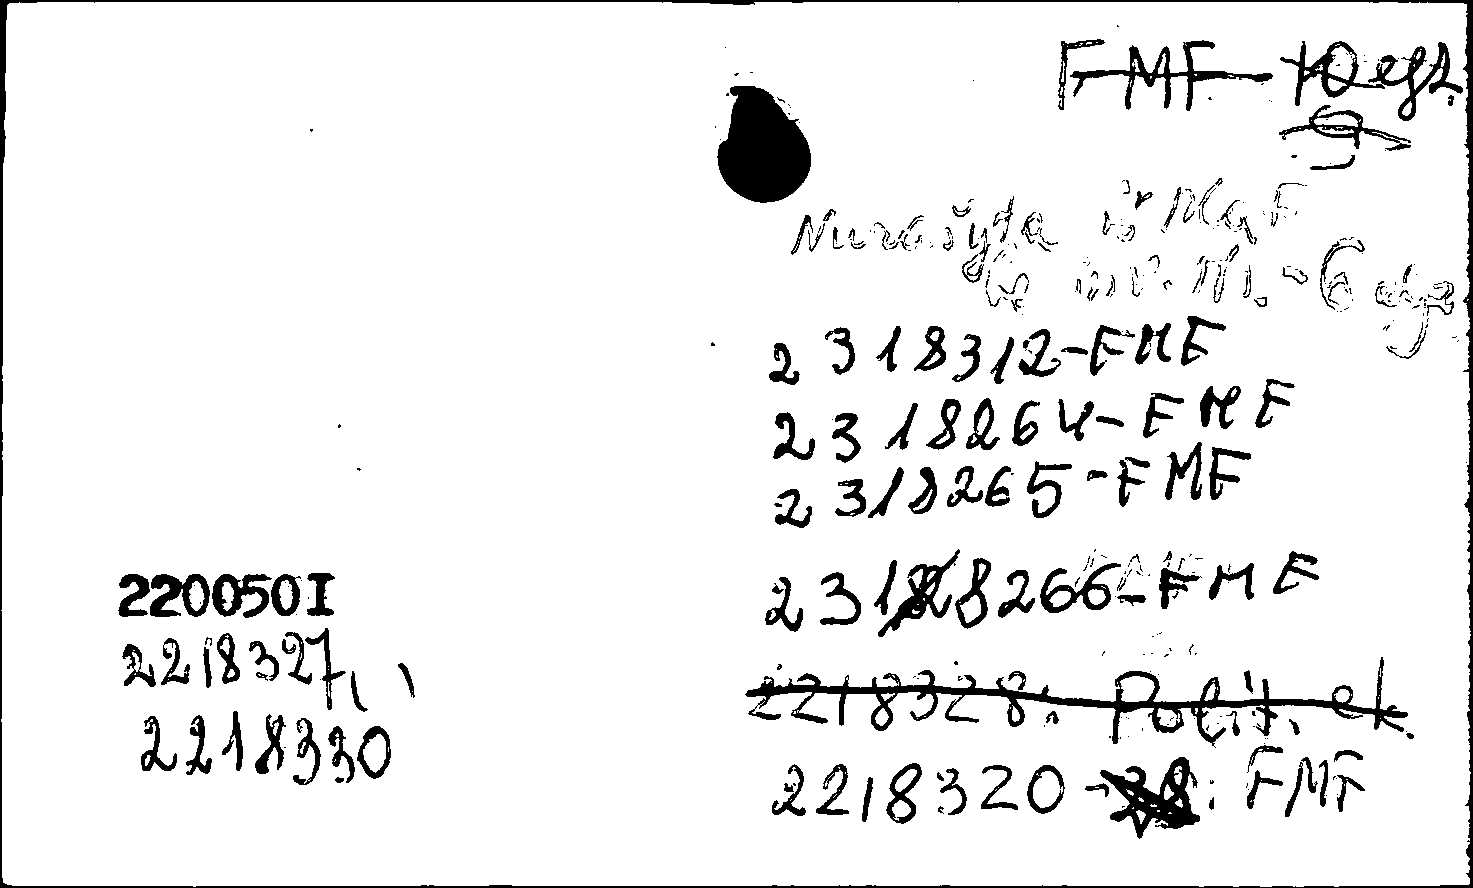 FMF 10 egz.
9
Nurašyta iš MaF
6 egz
2318312-FMF
2318264-FMF
2318265-FMF
2318266-FMF
2218328. Polit. ek.
2218320-: FMF
220050I
2218327,
2218330